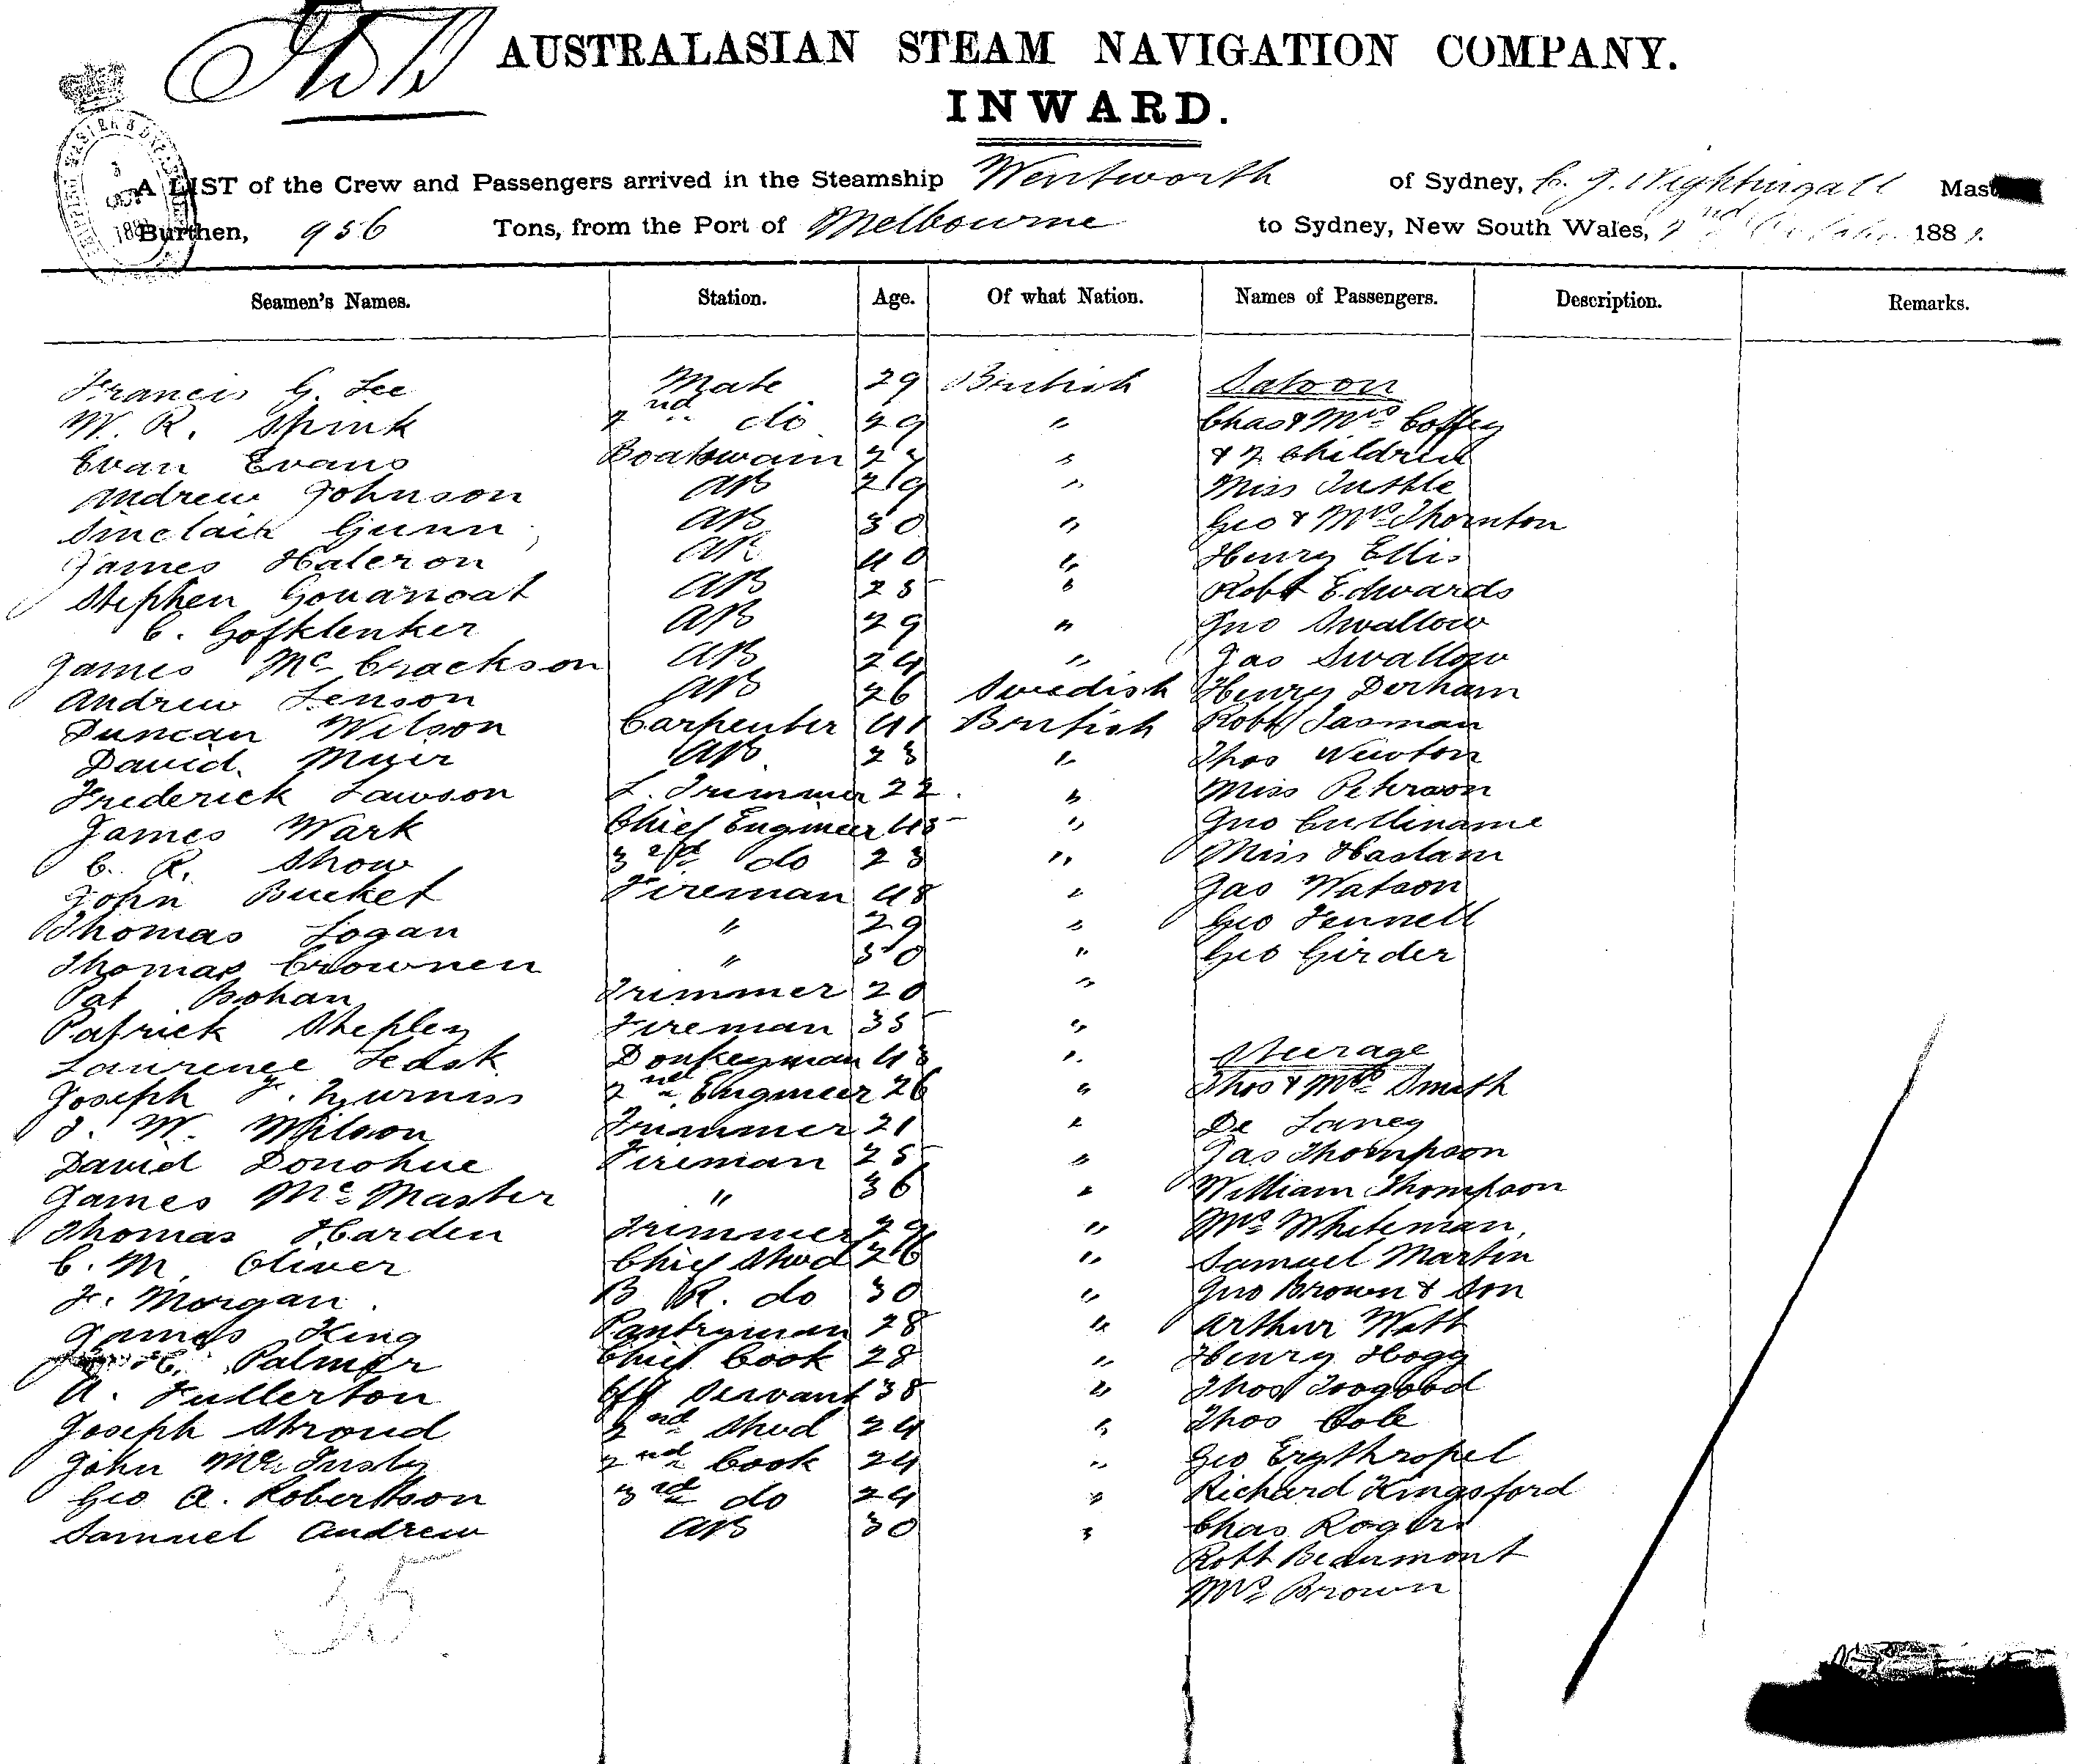 AUSTRALASIAN STEAM NAVIGATION COMPANY.
INWARD.
A LIST of the Crew and Passengers arrived in the Steamship Wentworth of Sydney, C. J. Nightingall Mast
Burthen, 956 Tons, from the Port of Melbourne to Sydney, New South Wales, 2nd October 188
Seamen's Names. Station. Age. Of what Nation. Names of Passengers. Description. Remarks.
Francis G. Lee Mate 29 British Saloon
W. R. Spink 2nd do 29 " Chas & Mrs Coffey
Evan Evans Boatswain 27 " & 2 Children
Andrew Johnson AB 29 " Miss Tuttle
Sinclair Gunn AB 30 " Geo & Mrs Thornton
James Halcron AB 40 " Henry Ellis
Stephen AB 25 " Robt Edwards
C. AB 29 " Jno Swallow
James McCrackson AB 24 " Jas Swallow
Andrew Lenson AB 26 Swedish Henry Derham
Duncan Wilson Carpenter 41 British Robt Tasman
David Muir AB 23 " Thos Newton
Frederick Lawson L. Trimmer 22 " Miss Pehrson
James Wark Chief Engineer 45 " Jno Culliname
C. R. Show 3rd do 23 " Miss Haslam
John Bucket Fireman 48 " Jas Watson
Thomas Logan " 29 " Geo Fennell
Thomas Crownen " 30 " Geo Girder
Pat Bohan Trimmer 20 "
Patrick Shepley Fireman 35 "
Laurence Leask Donkeyman 43 " Steerage
Joseph F. 2nd Engineer 26 " Thos & Mrs Smith
J. W. Wilson Trimmer 21 " De Laney
David Donohue Fireman 25 " Jas Thompson
James McMaster " 36 " William Thompson
Thomas Harden Trimmer 29 " Mrs Whiteman
C. M. Oliver Chief Stwd 26 " Samuel Martin
F. Morgan B R. do 30 " Jno Brown & Son
James King Pantryman 28 " Arthur Watt
H. Palmer Chief Cook 28 " Henry Hogg
A. Fullerton Off Servant 38 " Thos Toogood
Joseph Stroud 2nd Stwd 24 " Thos Cole
John 2nd Cook 24 " Geo Erythropel
Geo A. Robertson 3rd do 24 " Richard Kingsford
Samuel Andrew AB 30 " Chas Rogers
Robt Beaumont
Mrs Brown
35